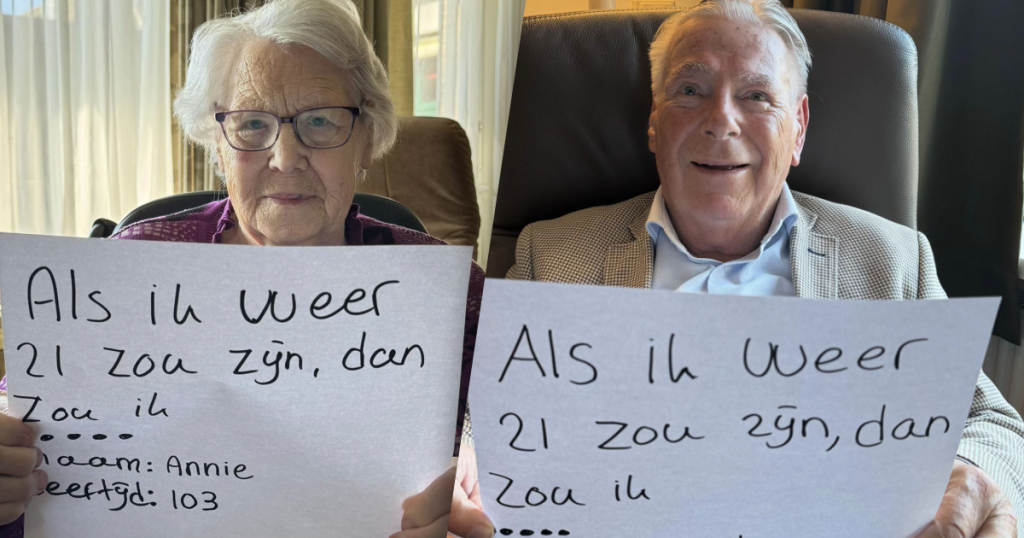 Als ik weer
21 zou zijn, dan
zou ik
.....
naam: Annie
leeftijd: 103
Als ik weer
21 zou zijn, dan
zou ik
.....